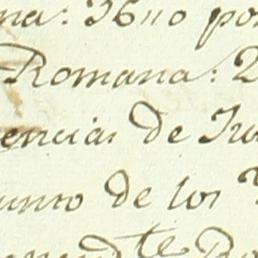 na: 1610 po
Romana: 2
encias de Ju
unto de los